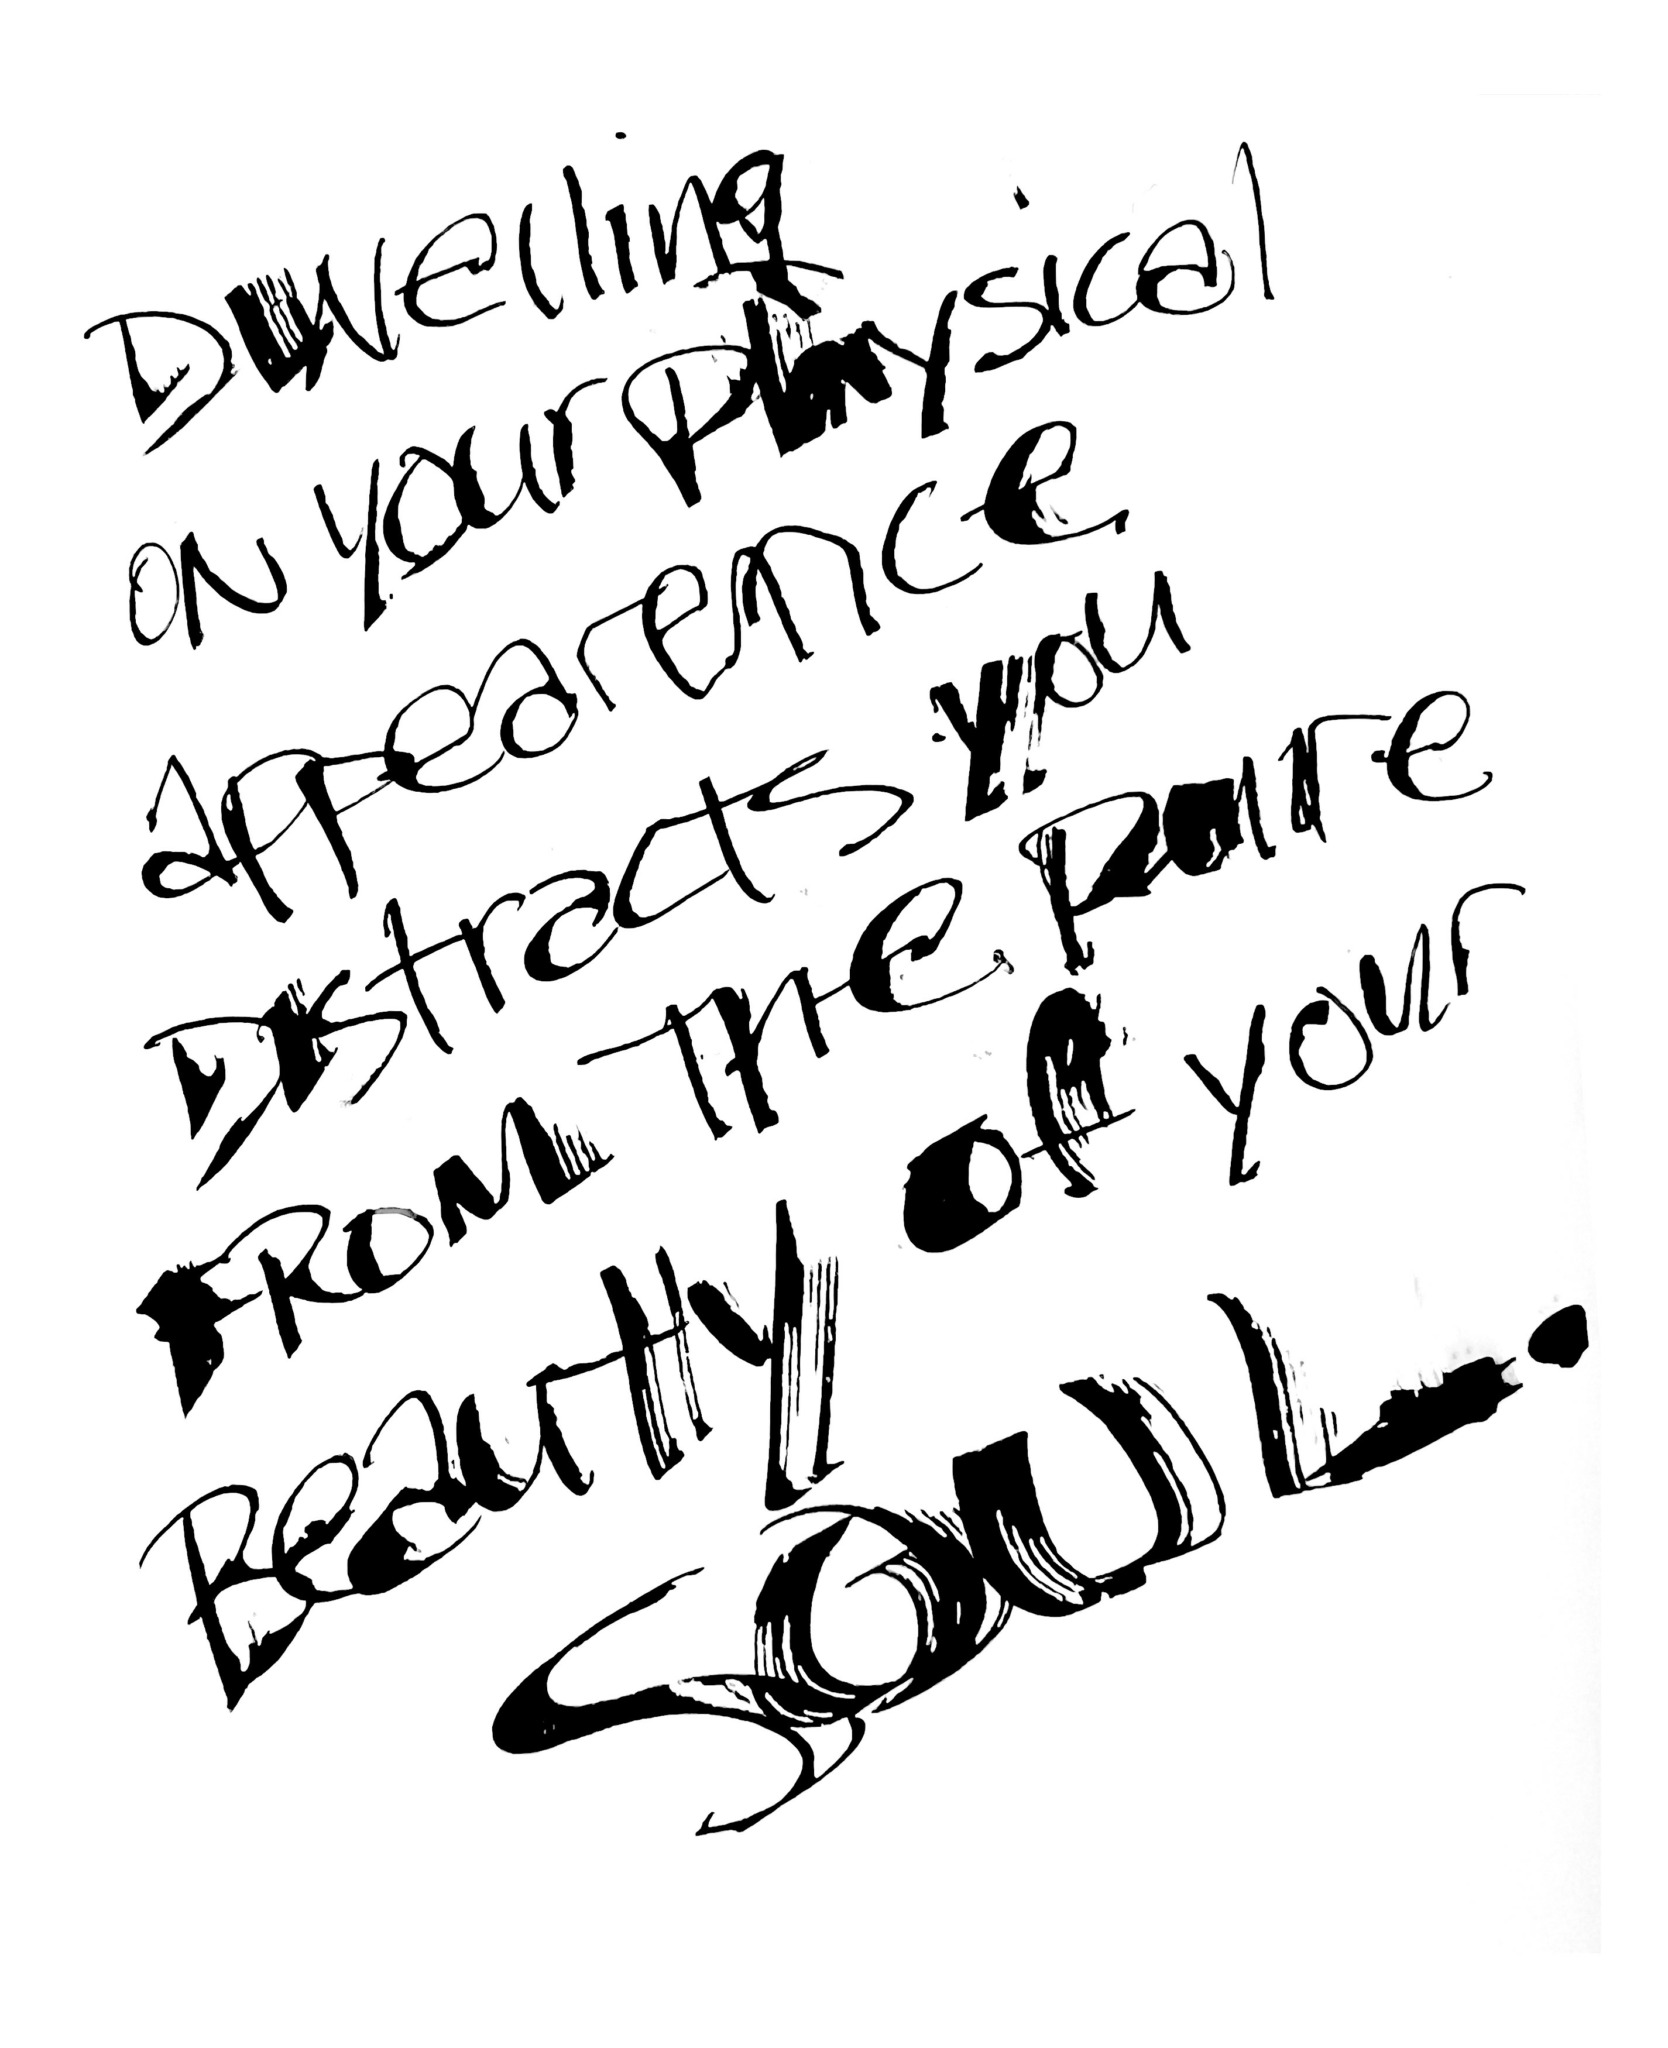 Dwelling
ON your physical
Appearence
Distracts you
FROM THE. Pure
Beauty of your
SOUL.